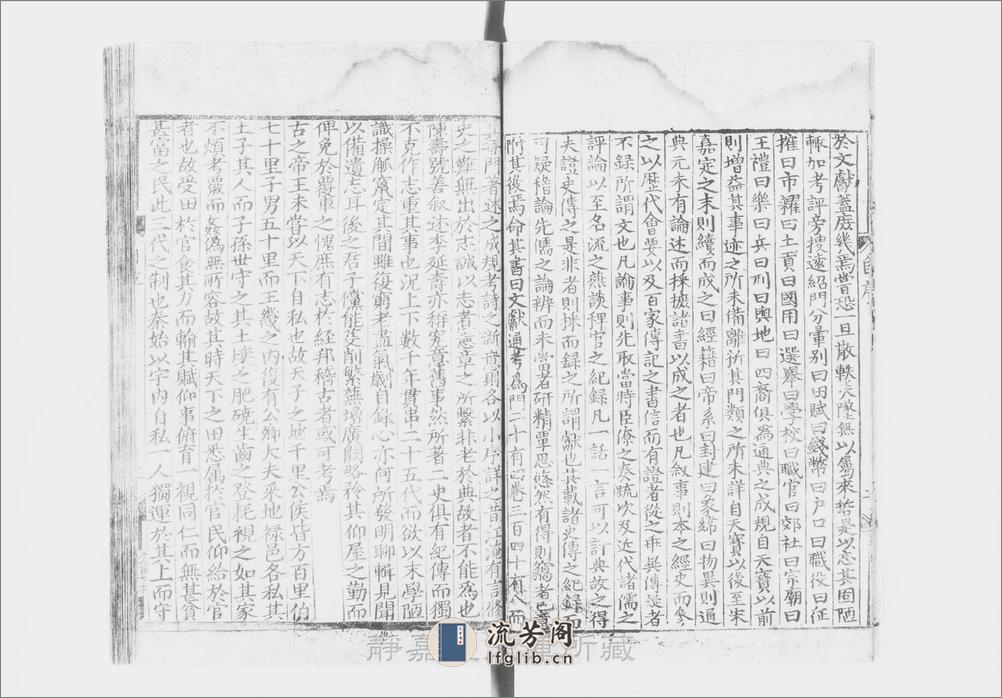 於文獻蓋庶幾焉嘗恐一旦散軼失墜無以屬來哲是以忘其固陋
輒加考評旁搜遠紹門分彙別曰田賦曰錢幣曰戶口曰職役曰征
搉曰市糴曰土貢曰國用曰選舉曰學校曰職官曰郊社曰宗廟曰
王禮曰樂曰兵曰刑曰輿地曰四裔俱倣通典之成規自天寶以前
則增益其事迹之所未備離析其門類之所未詳自天寶以後至宋
嘉定之末則續而成之曰經籍曰帝系曰封建曰象緯曰物異則通
典元未有論述而採摭諸書以成之者也凡叙事則本之經史而參
之以歷代會要以及百家傳記之書信而有證者從之乖異傳疑者
不錄所謂文也凡論事則先取當時臣僚之奏疏次及近代諸儒之
評論以至名流之燕談稗官之紀錄凡一話一言可以訂典故之得
失證史傳之是非者則採而錄之所謂獻也其載諸史傳之紀錄而
可疑稽諸先儒之論辨而未當者研精覃思悠然有得則竊著己意
附其後焉命其書曰文獻通考為門二十有四卷三百四十有八而
其每門著述之成規考訂之新意則各以小序詳之昔江淹有言修
史之難無出於志誠以志者憲章之所繫非老於典故者不能為也
陳壽號善叙述李延壽亦稱究悉舊事然所著二史俱有紀傳而獨
不克作志重其事也況上下數千年貫串二十五代而欲以末學陋
識操觚竄定其間雖復窮老盡氣劌目鉥心亦何所發明聊輯見聞
以備遺忘耳後之君子儻能芟削繁蕪增廣闕略矜其仰屋之勤而
俾免於覆車之愧庶有志於經邦稽古者或可考焉
古之帝王未嘗以天下自私也故天子之地千里公侯皆方百里伯
七十里子男五十里而王畿之內復有公卿大夫采地祿邑各私其
土子其人而子孫世守之其土壤之肥磽生齒之登耗視之如其家
不煩考覈而姦偽無所容故其時天下之田悉屬於官民仰給於官
者也故受田於官食其力而輸其賦仰事俯育一視同仁而無甚貧
甚富之民此三代之制也秦始以宇內自私一人獨運於其上而守
流芳阁
lfglib.cn